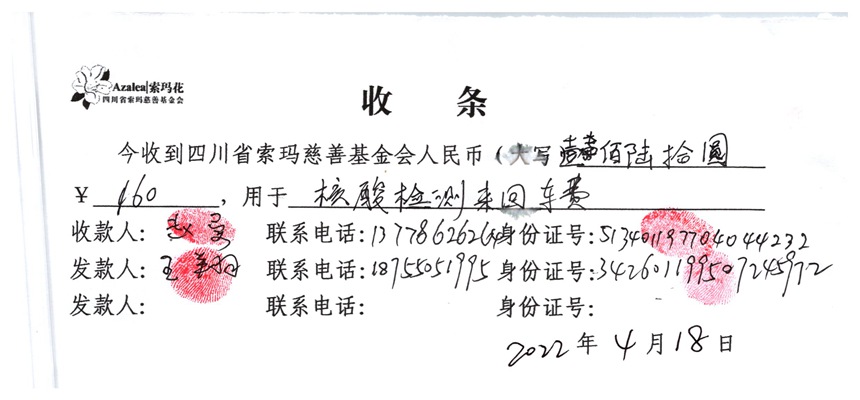 Azalea|索玛花
四川省索玛慈善基金会
收 条
今收到四川省索玛慈善基金会人民币（大写壹佰陆拾圆
￥160，用于核酸检测来回车费
收款人： 联系电话：13778626264身份证号：513401197704044232
发款人：王 联系电话：18755051995身份证号：342601199507245972
发款人： 联系电话： 身份证号：
2022年4月18日